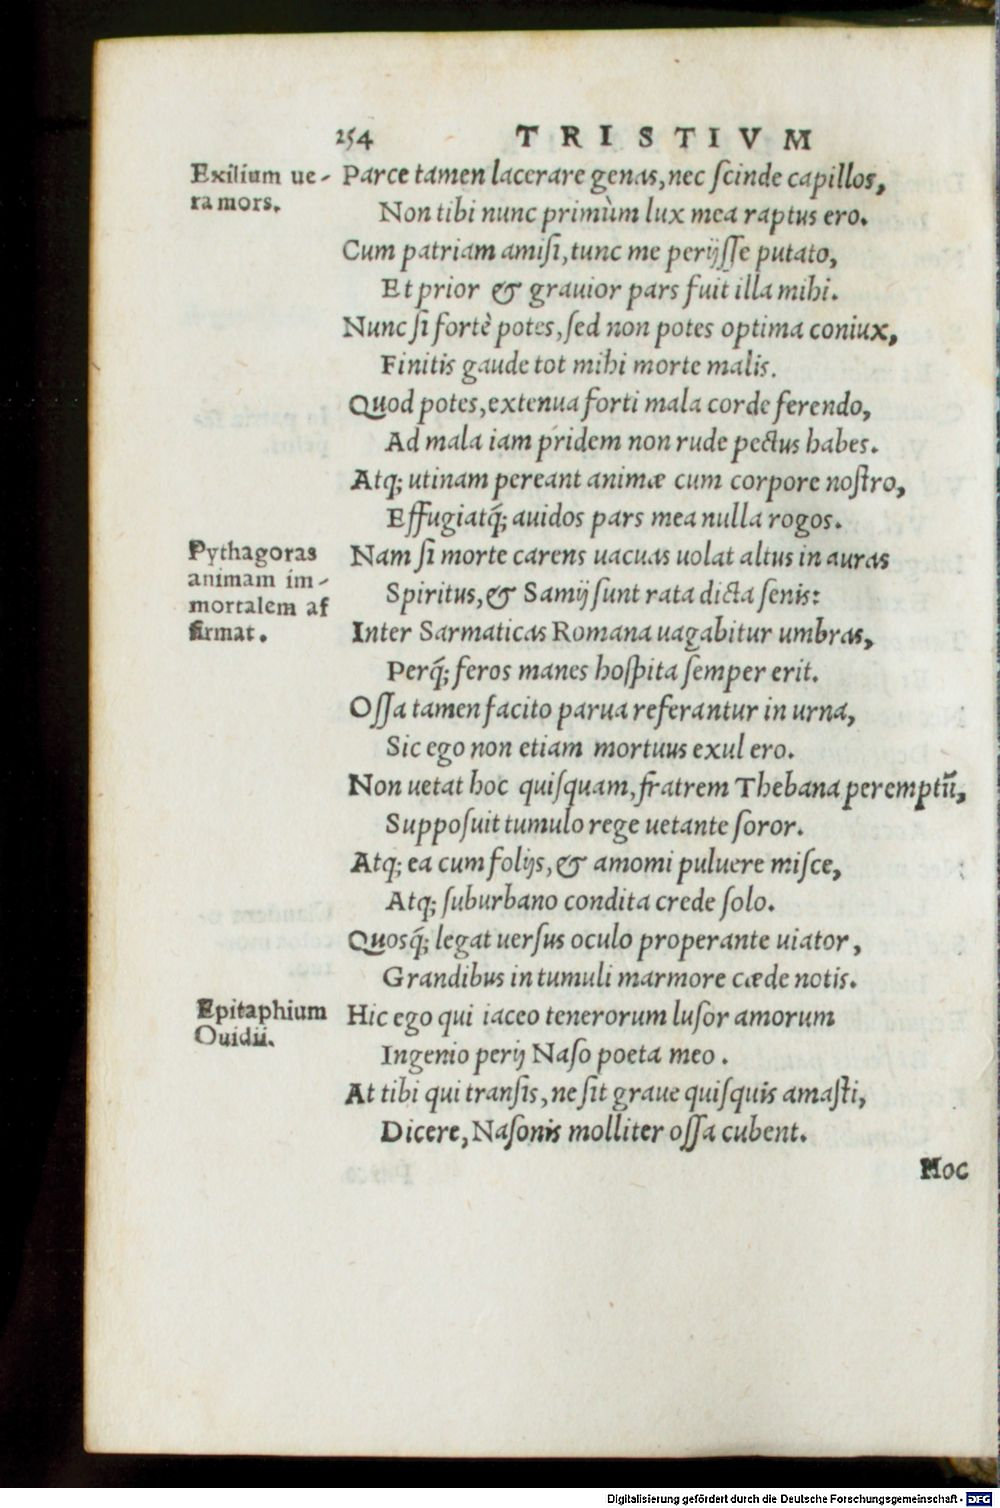 254 TRISTIVM
Exilium ue-
ra mors.
Parce tamen lacerare genas, nec ſcinde capillos,
Non tibi nunc primùm lux mea raptus ero.
Cum patriam amiſi, tunc me perijſſe putato,
Et prior & grauior pars fuit illa mihi.
Nunc ſi fortè potes, ſed non potes optima coniux,
Finitis gaude tot mihi morte malis.
Quod potes, extenua forti mala corde ferendo,
Ad mala iam pridem non rude pectus habes.
Atq; utinam pereant animæ cum corpore noſtro,
Effugiatq́; auidos pars mea nulla rogos.
Pythagoras
animam im-
mortalem af
firmat.
Nam ſi morte carens uacuas uolat altus in auras
Spiritus, & Samij ſunt rata dicta ſenis:
Inter Sarmaticas Romana uagabitur umbras,
Perq́; feros manes hoſpita ſemper erit.
Oſſa tamen facito parua referantur in urna,
Sic ego non etiam mortuus exul ero.
Non uetat hoc quiſquam, fratrem Thebana peremptũ,
Suppoſuit tumulo rege uetante ſoror.
Atq; ea cum folijs, & amomi puluere miſce,
Atq; ſuburbano condita crede ſolo.
Quosq́; legat uerſus oculo properante uiator,
Grandibus in tumuli marmore cæde notis.
Epitaphium
Ouidii.
Hic ego qui iaceo tenerorum luſor amorum
Ingenio perij Naſo poeta meo.
At tibi qui tranſis, ne ſit graue quiſquis amaſti,
Dicere, Naſonis molliter oſſa cubent.
Hoc
Digitalisierung gefördert durch die Deutsche Forschungsgemeinschaft - DFG